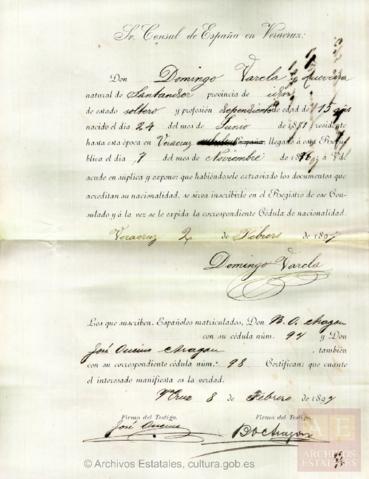 Sr. Consul de España en Veracruz:
Don Domingo Varela
natural de Santander provincia de
de estado soltero y profesión dependiente de edad de 15 años
nacido el día 24 del mes de Junio 1881 residente
hasta esta época en Veracruz llegado á esta Repú-
blica el día 7 del mes de Noviembre 1896 á Vd.
acude en súplica y expone: que habiéndosele extraviado los documentos que
acreditan su nacionalidad, se sirva inscribirlo en el Registro de ese Con-
sulado y á la vez se le expida la correspondiente Cédula de nacionalidad.
Veracruz 2 de Febrero 1897
Domingo Varela
Los que suscriben, Españoles matriculados, Don B. O. Aragon
con su cédula núm. 94 y Don
José Aragon, también
con su correspondiente cédula núm. 98. Certifican: que cuanto
el interesado manifiesta es la verdad.
V Cruz 8 de Febrero 1897
Firma del Testigo. Firma del Testigo.
José B O Aragon
AE
ARCHIVOS
ESTATALES
© Archivos Estatales, cultura.gob.es